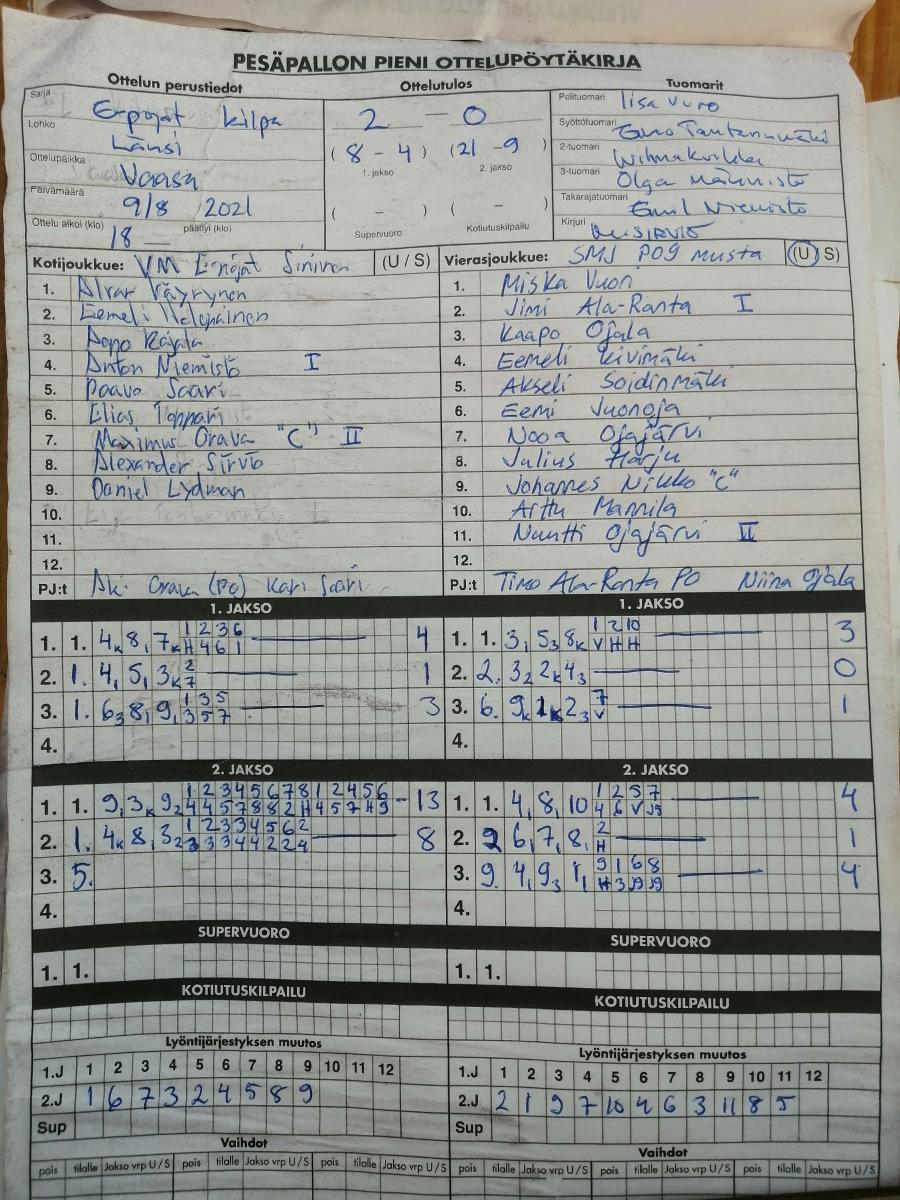 PESÄPALLON PIENI OTTELUPÖYTÄKIRJA
Ottelun perustiedot
Ottelutulos
Tuomarit
Sarja E-pojat kilpa
Lohko Länsi
Ottelupaikka Vaasa
Päivämäärä 9/8 2021
Ottelu alkoi (klo) 18 päättyi (klo)
2 — 0
(8 - 4) (21 - 9)
1. jakso 2. jakso
( - ) ( - )
Supervuoro Kotiutuskilpailu
Pelituomari Iisa Vuro
Syöttötuomari
2-tuomari
3-tuomari Olga Männistö
Takarajatuomari Emil Niemistö
Kirjuri M. SIRVIÖ
Kotijoukkue: VM E-pojat Sininen (U / S)
1. Alvar Väyrynen
2. Eemeli
3. Aapo
4. Anton Niemistö I
5. Paavo Saari
6. Elias Toppari
7. Maximus Orava "C" II
8. Alexander Sirviö
9. Daniel Lydman
10.
11.
12.
PJ:t Aki Orava (PO) Kari Saari
Vierasjoukkue: SMJ PO9 musta (U / S)
1. Miska Vuori
2. Jimi Ala-Ranta I
3. Kaapo Ojala
4. Eemeli Kivimäki
5. Akseli Soidinmäki
6. Eemi Vuonoja
7. Nooa Ojajärvi
8. Julius Harju
9. Johannes Nikko "C"
10. Arttu Mannila
11. Nuutti Ojajärvi II
12.
PJ:t Timo Ala-Ranta PO Niina Ojala
1. JAKSO
1. 1. 4K 8, 7K 1 2 3 6 4
H 4 6 1
2. 1. 4, 5, 3K 2 1
7
3. 1. 63 8, 9, 1 3 5 3
3 5 7
4.
1. JAKSO
1. 1. 3, 53 8K 1 2 10 3
V H H
2. 2. 32 2K 43 0
3. 6. 9K 1K 23 7 1
V
4.
2. JAKSO
1. 1. 9, 3K 92 1 2 3 4 5 6 7 8 1 2 4 5 6 13
4 4 5 7 8 8 2 H 4 5 7 H 9
2. 1. 4K 8, 32 1 2 3 3 4 5 6 2 8
3 3 3 4 4 2 2 4
3. 5.
4.
2. JAKSO
1. 1. 4, 8, 10 1 2 5 7 4
4 6 V
2. 2 6, 7, 8, 2 1
H
3. 9. 4, 93 1, 9 1 6 8 4
H 3
4.
SUPERVUORO
1. 1.
SUPERVUORO
1. 1.
KOTIUTUSKILPAILU
KOTIUTUSKILPAILU
Lyöntijärjestyksen muutos
1.J 1 2 3 4 5 6 7 8 9 10 11 12
2.J 1 6 7 3 2 4 5 8 9
Sup
Lyöntijärjestyksen muutos
1.J 1 2 3 4 5 6 7 8 9 10 11 12
2.J 2 1 9 7 10 4 6 3 11 8 5
Sup
Vaihdot
pois tilalle Jakso vrp U / S pois tilalle Jakso vrp U / S pois tilalle Jakso vrp U / S
Vaihdot
pois tilalle Jakso vrp U / S pois tilalle Jakso vrp U / S pois tilalle Jakso vrp U / S